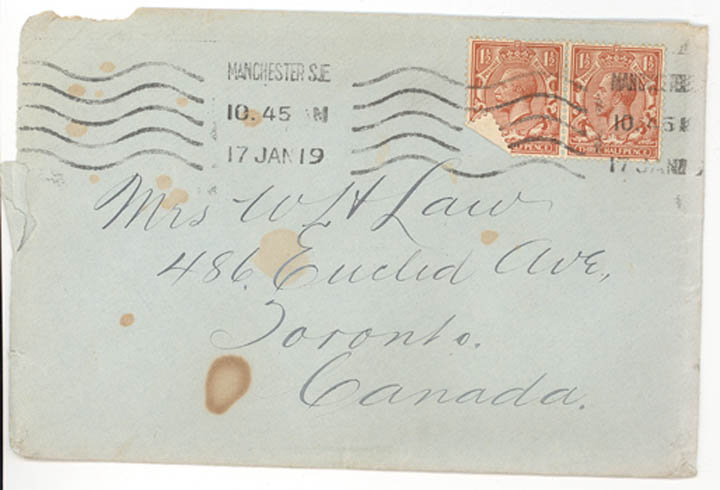 MANCHESTER S.E
10. 45 AM
17 JAN 19
1½ 1½
THREE HALFPENCE
MANCHESTER
10.45
17 JAN
Mrs W H Law
486 Euclid Ave,
Toronto.
Canada.